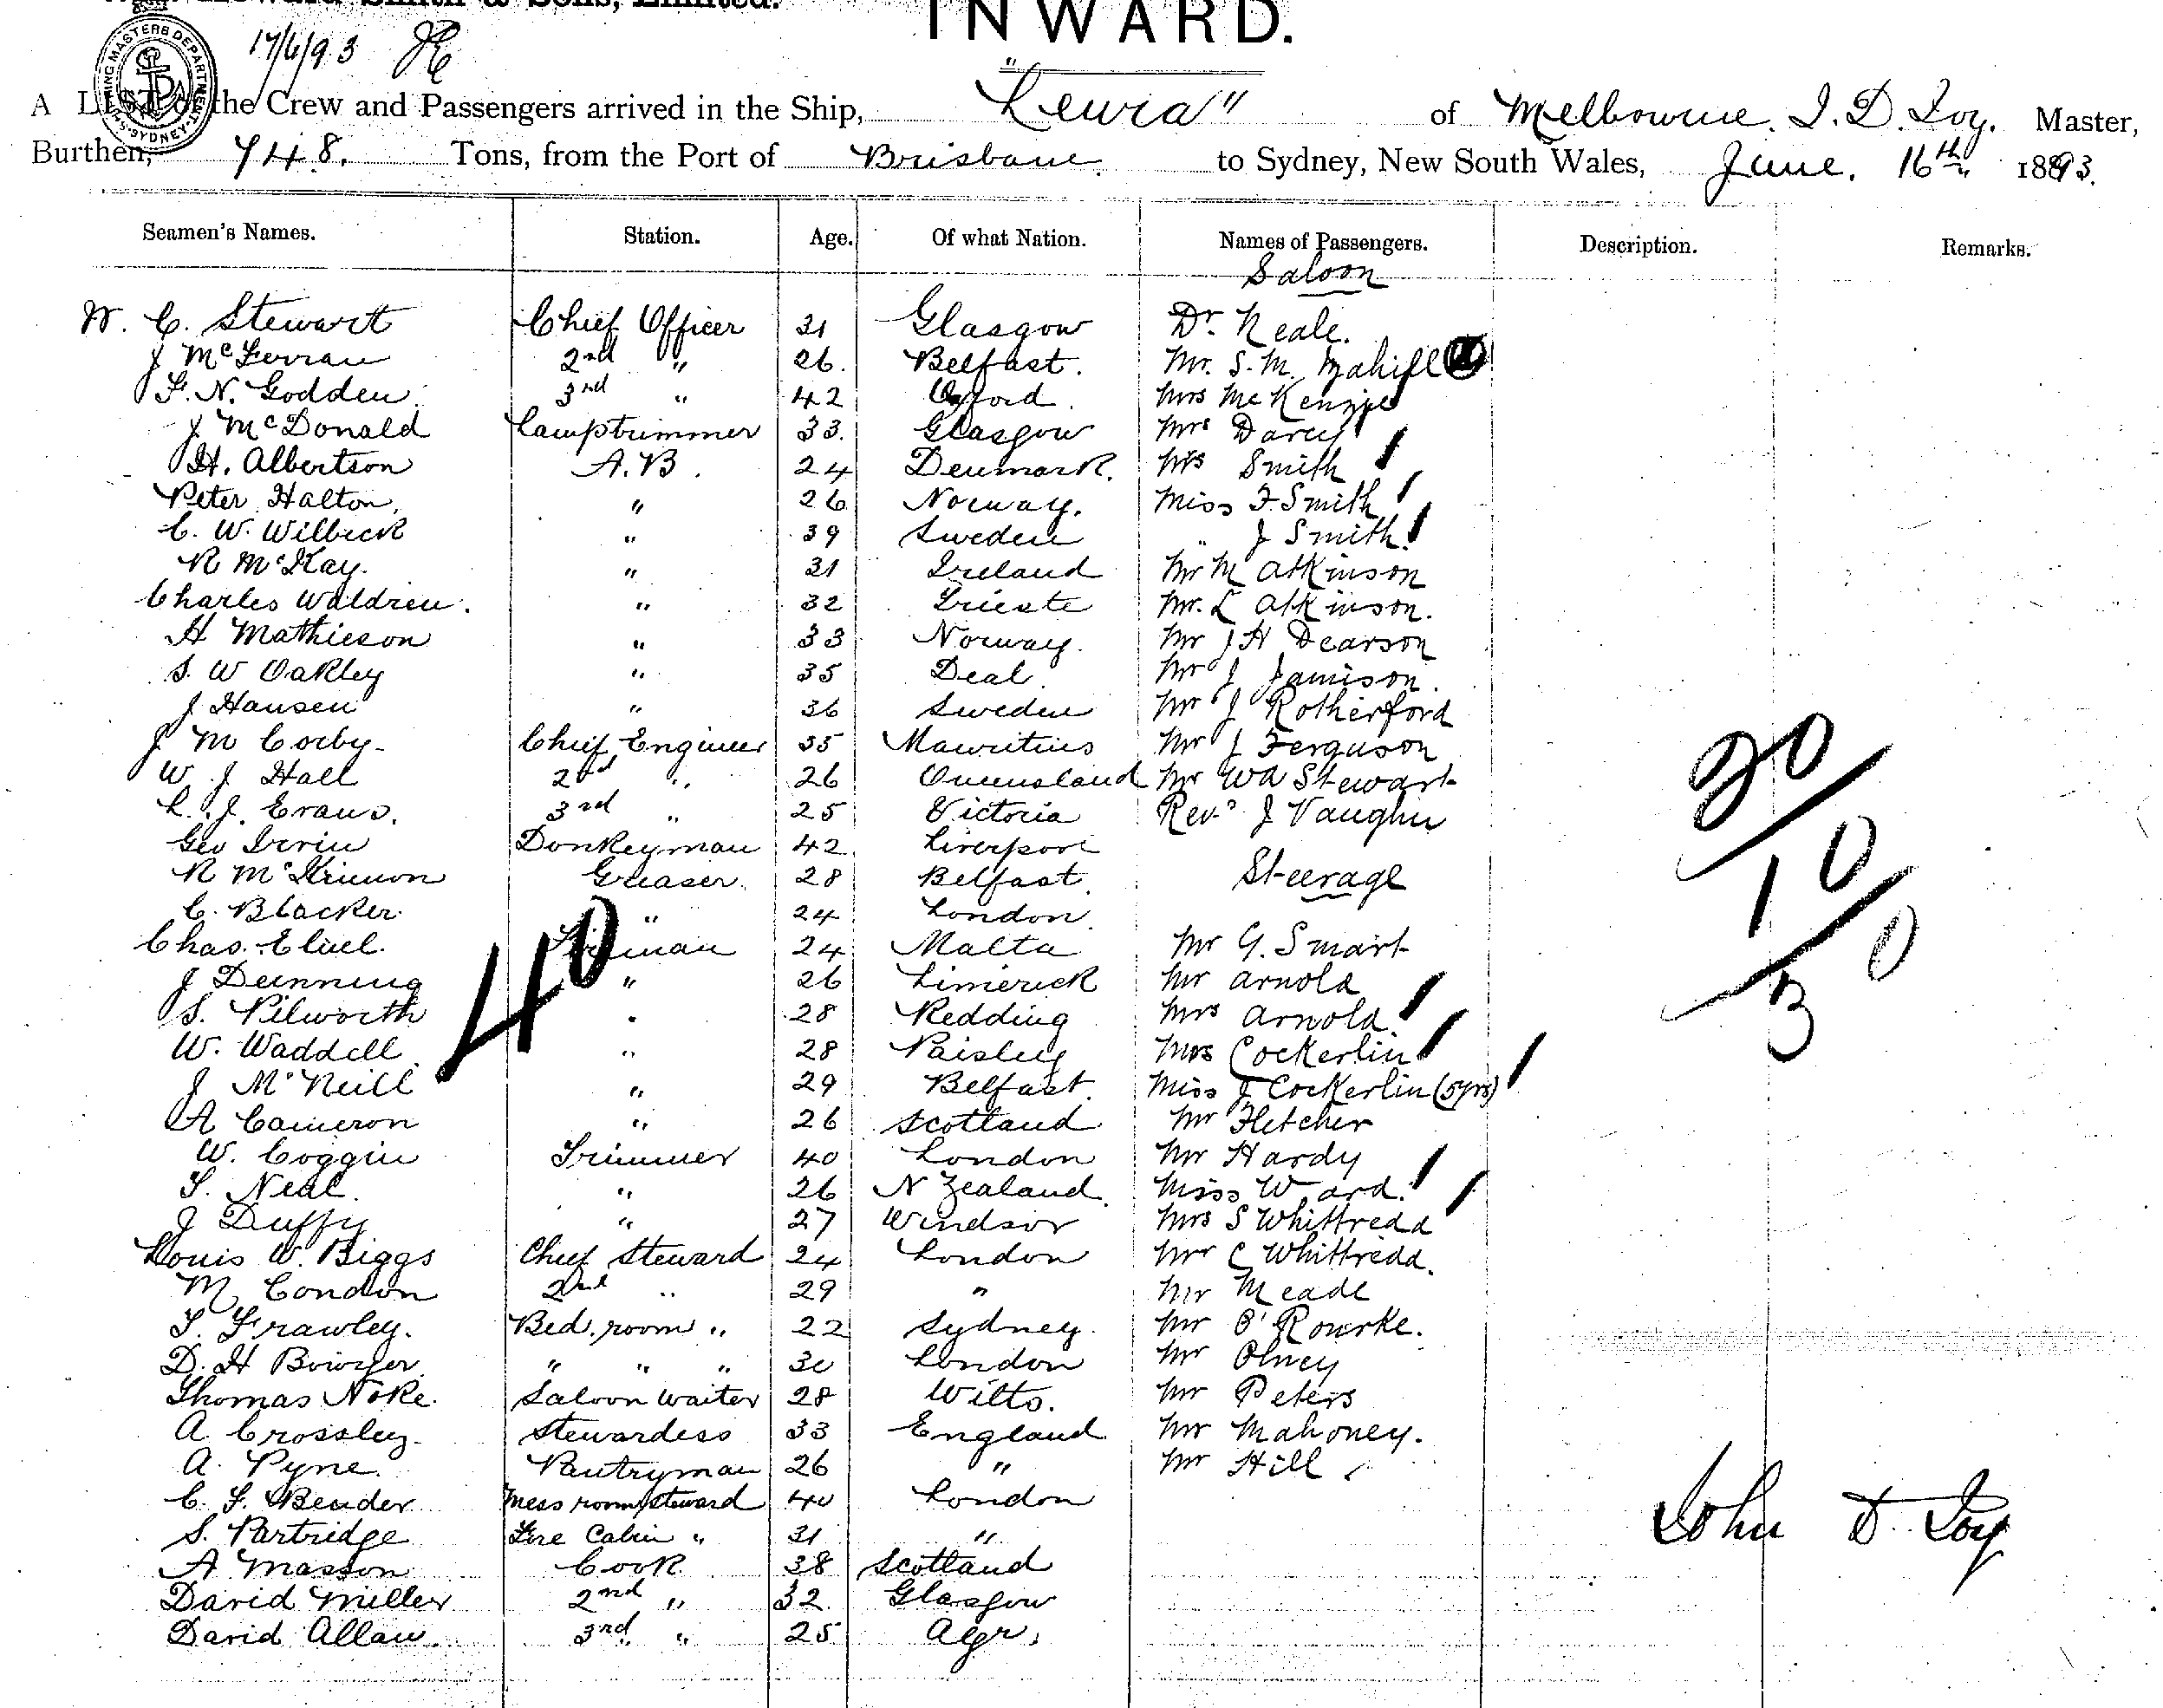 Howard Smith & Sons, Limited.
INWARD.
SHIPPING MASTERS DEPARTMENT SYDNEY
17/6/93
A LIST of the Crew and Passengers arrived in the Ship, "Leura" of Melbourne. J. D. Toy. Master,
Burthen, 948. Tons, from the Port of Brisbane. to Sydney, New South Wales, June. 16th 1893.
Seamen's Names. Station. Age. Of what Nation. Names of Passengers. Description. Remarks.
Saloon
W. C. Stewart Chief Officer 31 Glasgow Dr. Neale.
J McFerran 2nd " 26. Belfast. Mr. S. M.
F. N. Godden. 3rd " 42 Oxford. Mrs McKenzie
J McDonald Lamptrimmer 33. Glasgow Mrs Darcy
H. Albertson A.B. 24 Denmark. Mrs Smith
Peter Halton, " 26 Norway. Miss F. Smith
C. W. Wilbeck " 39 Sweden " J Smith
R McKay. " 31 Ireland Mr M Atkinson
Charles Waldren. " 32 Trieste Mr. L Atkinson.
H Mathieson " 33 Norway. Mr J H Dearson
S. W Oakley " 35 Deal. Mr J Jamison.
J Hansen " 36 Sweden Mr J Rotherford
J M Corby 55 Chief Engineer Mauritius Mr J Ferguson
W. J Hall 2nd " 26 Queensland Mr WA Stewart
L. J. Evans. 3rd " 25 Victoria Revd J Vaughn
Geo Irvin Donkeyman 42. Liverpool
R McKinnon Greaser. 28 Belfast. Steerage
C. Blacker. " 24 London.
Chas. Fireman 24 Malta Mr G. Smart
J Dunning " 26 Limerick Mr Arnold
S. Pilworth " 28 Redding Mrs Arnold
W. Waddell " 28 Paisley Mrs Cockerlin
J McNeill " 29 Belfast. Miss J Cockerlin (5yrs)
A Cameron " 26 Scotland Mr Fletcher
W. Coggin Trimmer 40 London Mr Hardy
T. Neal. " 26 N Zealand. Miss Ward.
J Duffy " 27 Windsor Mrs S Whittredd
Louis W. Biggs Chief Steward 24 London Mr C Whittredd.
M. Condon 2nd " 29 " Mr Meade
T. Frawley. Bed. room " 22 Sydney. Mr O'Rourke.
D. H Bowyer " " " 30 London Mr Olney
Thomas Noke. Saloon Waiter 28 Wilts. Mr Peters
A Crossley. Stewardess 33 England Mr Mahoney.
A. Pyne. Pantryman 26 " Mr Hill
C. F. Bender Mess room steward 40 London
S. Partridge Fore Cabin " 31 "
A Masson Cook 38 Scotland
David Miller 2nd " 32. Glasgow
David Allan. 3rd " 25 Ayr.
40
20
10
30
John D. Toy